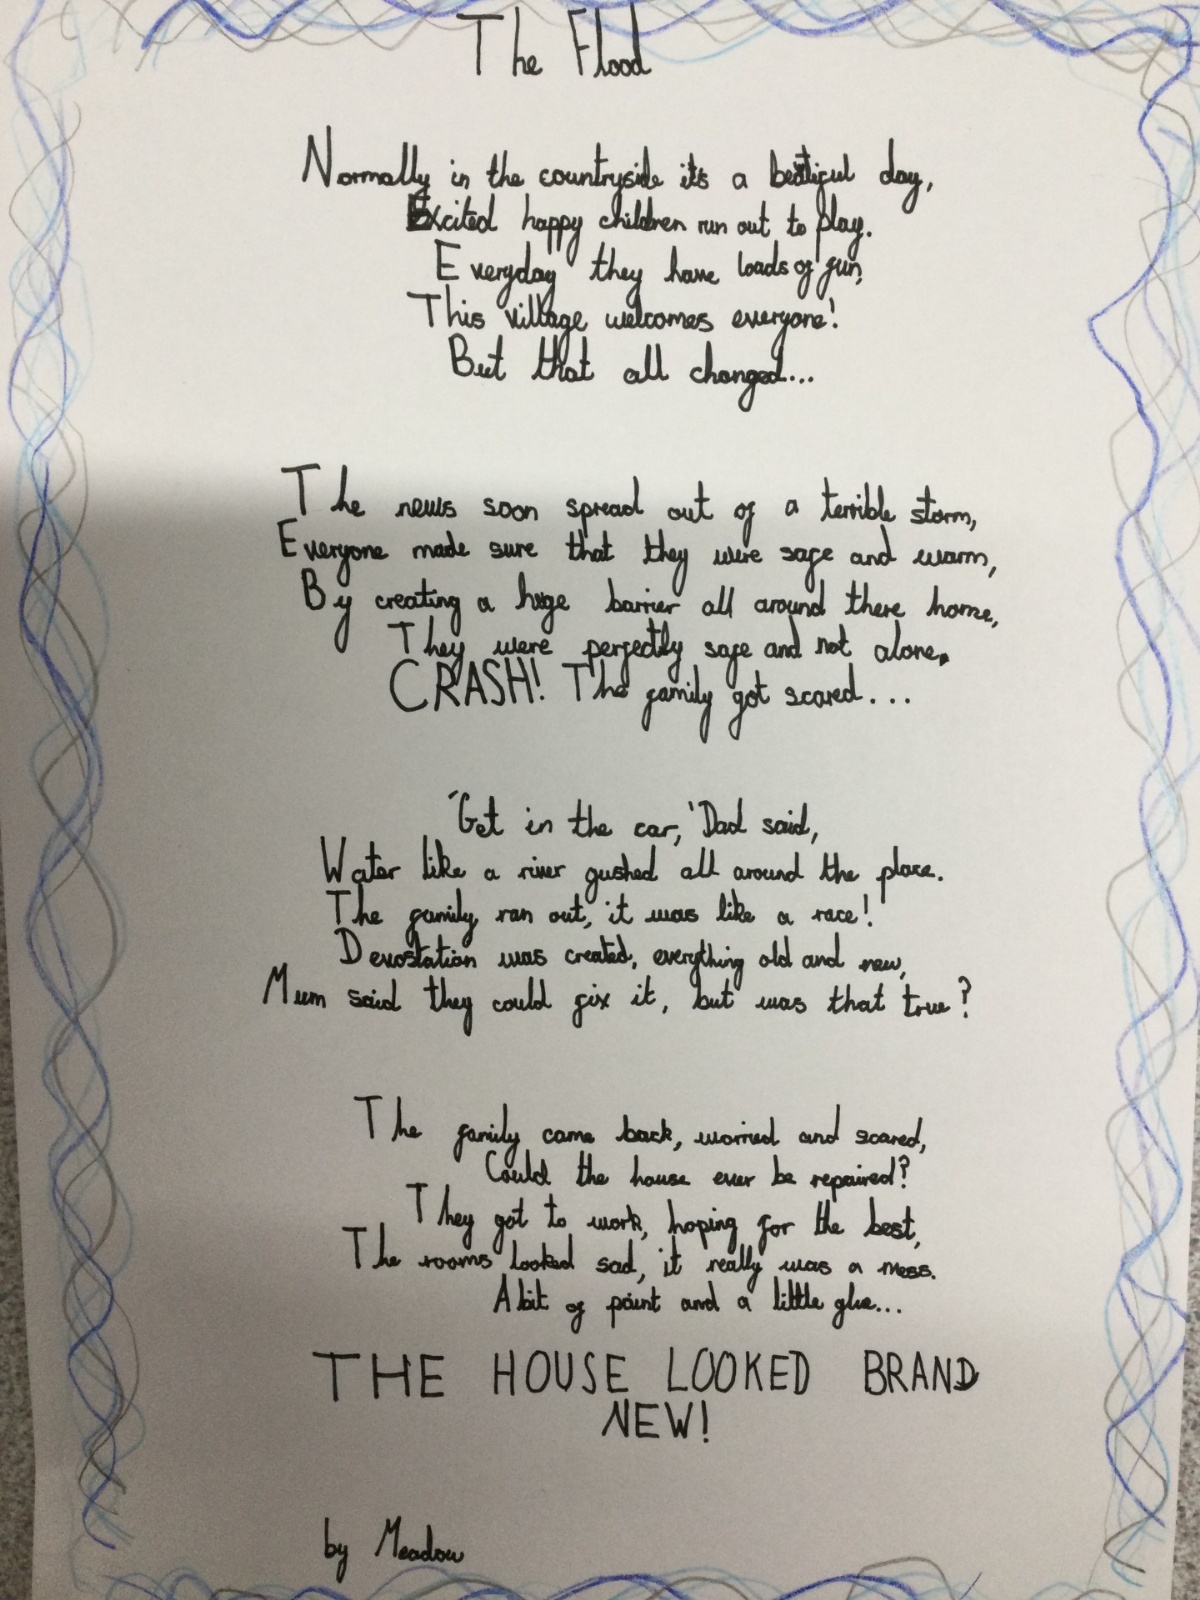 The Flood
Normally in the countryside it's a beatiful day,
Excited happy children run out to play.
Everyday they have loads of fun,
This village welcomes everyone!
But that all changed...
The news soon spread out of a terrible storm,
Everyone made sure that they were safe and warm,
By creating a huge barrier all around there home,
They were perfectly safe and not alone.
CRASH! The family got scared...
'Get in the car,' Dad said,
Water like a river gushed all around the place.
The family ran out, it was like a race!
Devastation was created, everything old and new,
Mum said they could fix it, but was that true?
The family came back, worried and scared,
Could the house ever be repaired?
They got to work, hoping for the best,
The rooms looked sad, it really was a mess.
A bit of paint and a little glue...
THE HOUSE LOOKED BRAND
NEW!
by Meadow